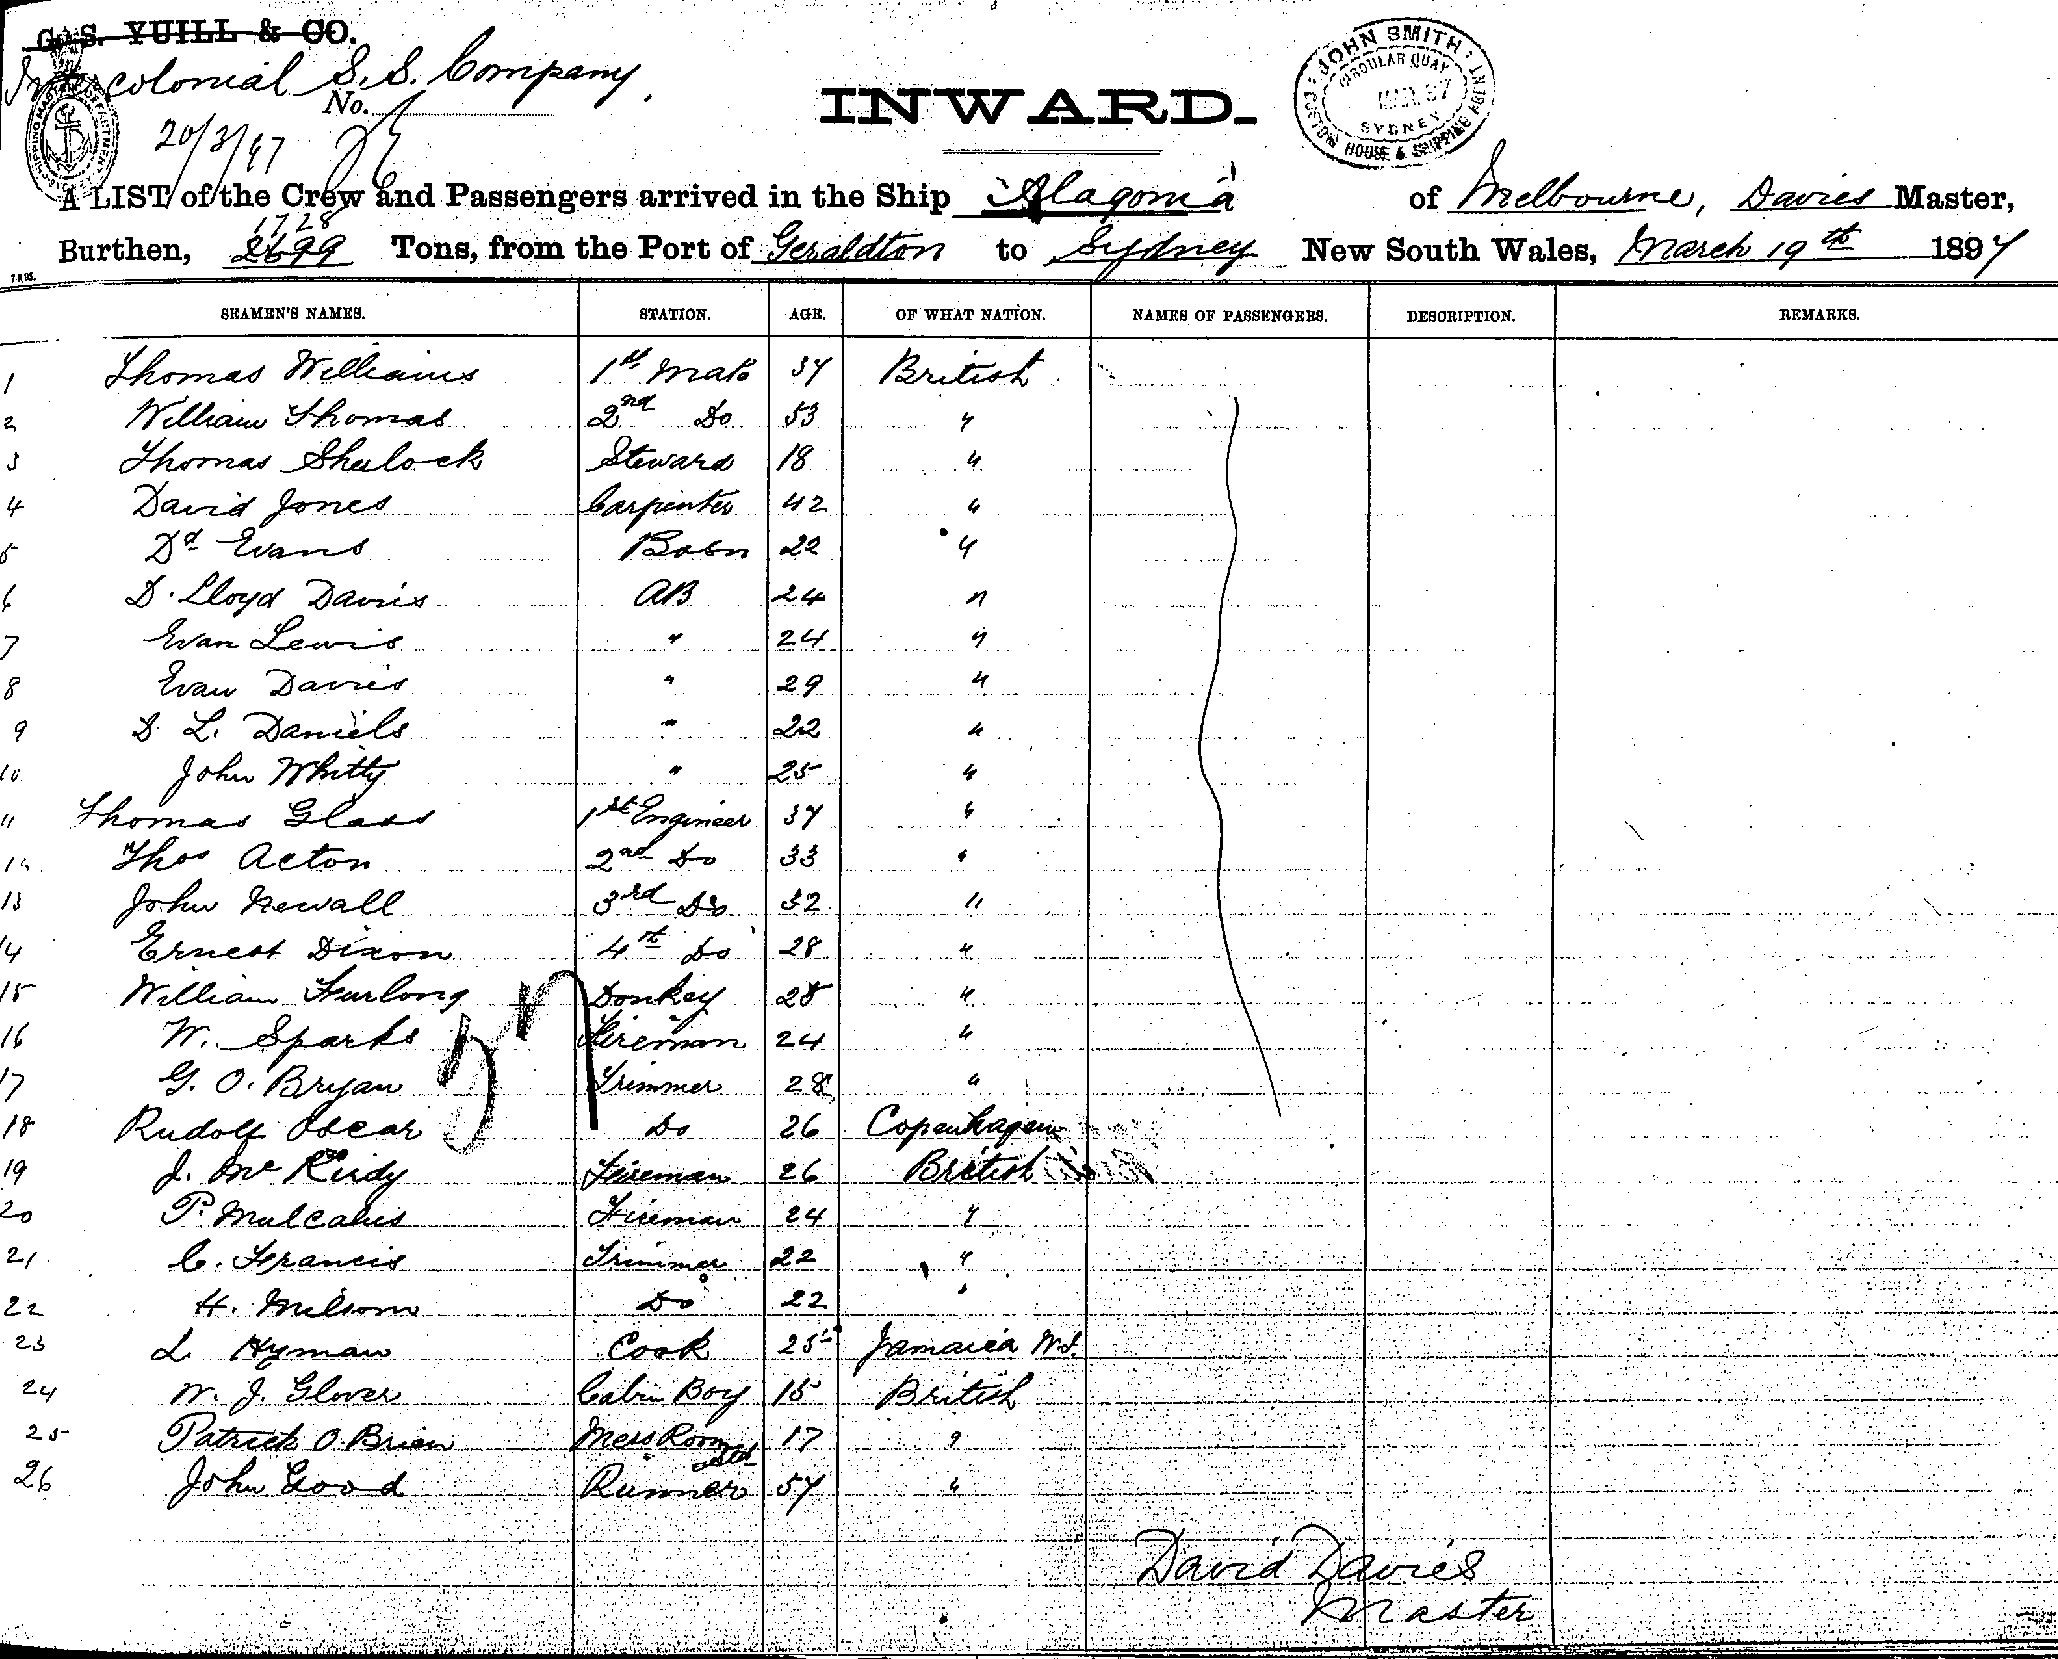 G. S. YUILL & CO.
Intercolonial S. S. Company,
No.
20/3/97
INWARD.
JOHN SMITH
CIRCULAR QUAY
SYDNEY
CUSTOM HOUSE & SHIPPING AGENT
A LIST of the Crew and Passengers arrived in the Ship Alagonia of Melbourne, Davies Master,
1728
Burthen, 2699 Tons, from the Port of Geraldton to Sydney New South Wales, March 19th 1897
SEAMEN'S NAMES. STATION. AGE. OF WHAT NATION. NAMES OF PASSENGERS. DESCRIPTION. REMARKS.
1 Thomas Williams 1st Mate 37 British
2 William Thomas 2nd Do 53 "
3 Thomas Shulock Steward 18 "
4 David Jones Carpenter 42 "
5 Dd Evans Bosn 22 "
6 D. Lloyd Davis AB 24 "
7 Evan Lewis " 24 "
8 Evan Davies " 29 "
9 D L. Daniels " 22 "
10 John Whitty " 25 "
11 Thomas Glass 1st Engineer 37 "
12 Thos Acton 2nd Do 33 "
13 John Newall 3rd Do 32 "
14 Ernest Dixon 4th Do 28 "
15 William Furlong Donkey 28 "
16 W. Sparks Fireman 24 "
17 G. O. Bryan Trimmer 28 "
18 Rudolf Oscar Do 26 Copenhagen
19 J. Mc Kirdy Fireman 26 British
20 P. Mulcahis Fireman 24 "
21 C. Francis Trimmer 22 "
22 H. Milsom Do 22 "
23 L Hyman Cook 25 Jamaica W.I.
24 W. J. Glover Cabin Boy 15 British
25 Patrick O Brien Mess Room 17 "
26 John Good Runner 57 "
David Davies
Master